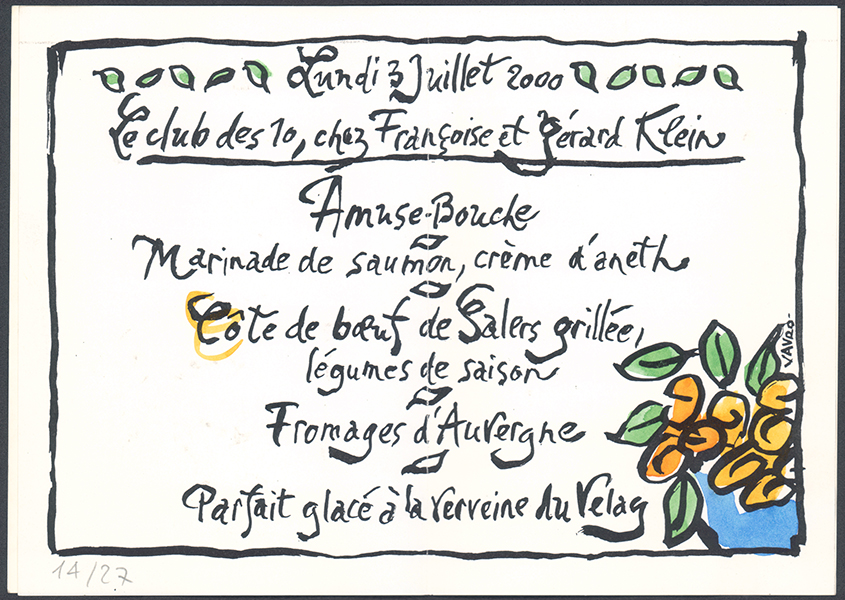 Lundi 3 Juillet 2000
Le club des 10, chez Françoise et Gérard Klein
Amuse-Bouche
Marinade de saumon, crème d'aneth
Côte de bœuf de Salers grillée,
légumes de saison
Fromages d'Auvergne
Parfait glacé à la verveine du Velay
VAVRO-
14/27